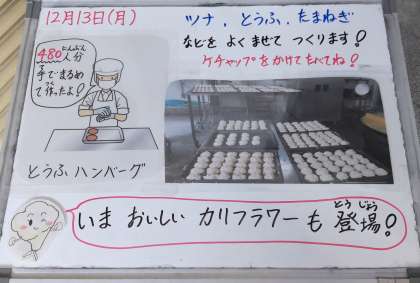 12月13日(月)
ツナ、とうふ、たまねぎ
などを よく まぜて つくります!
ケチャップをかけてたべてね!
480人分
にんぶん
手でまるめ
て作ったよ!
つく
とうふハンバーグ
いま おいしい カリフラワーも 登場!
とう じょう